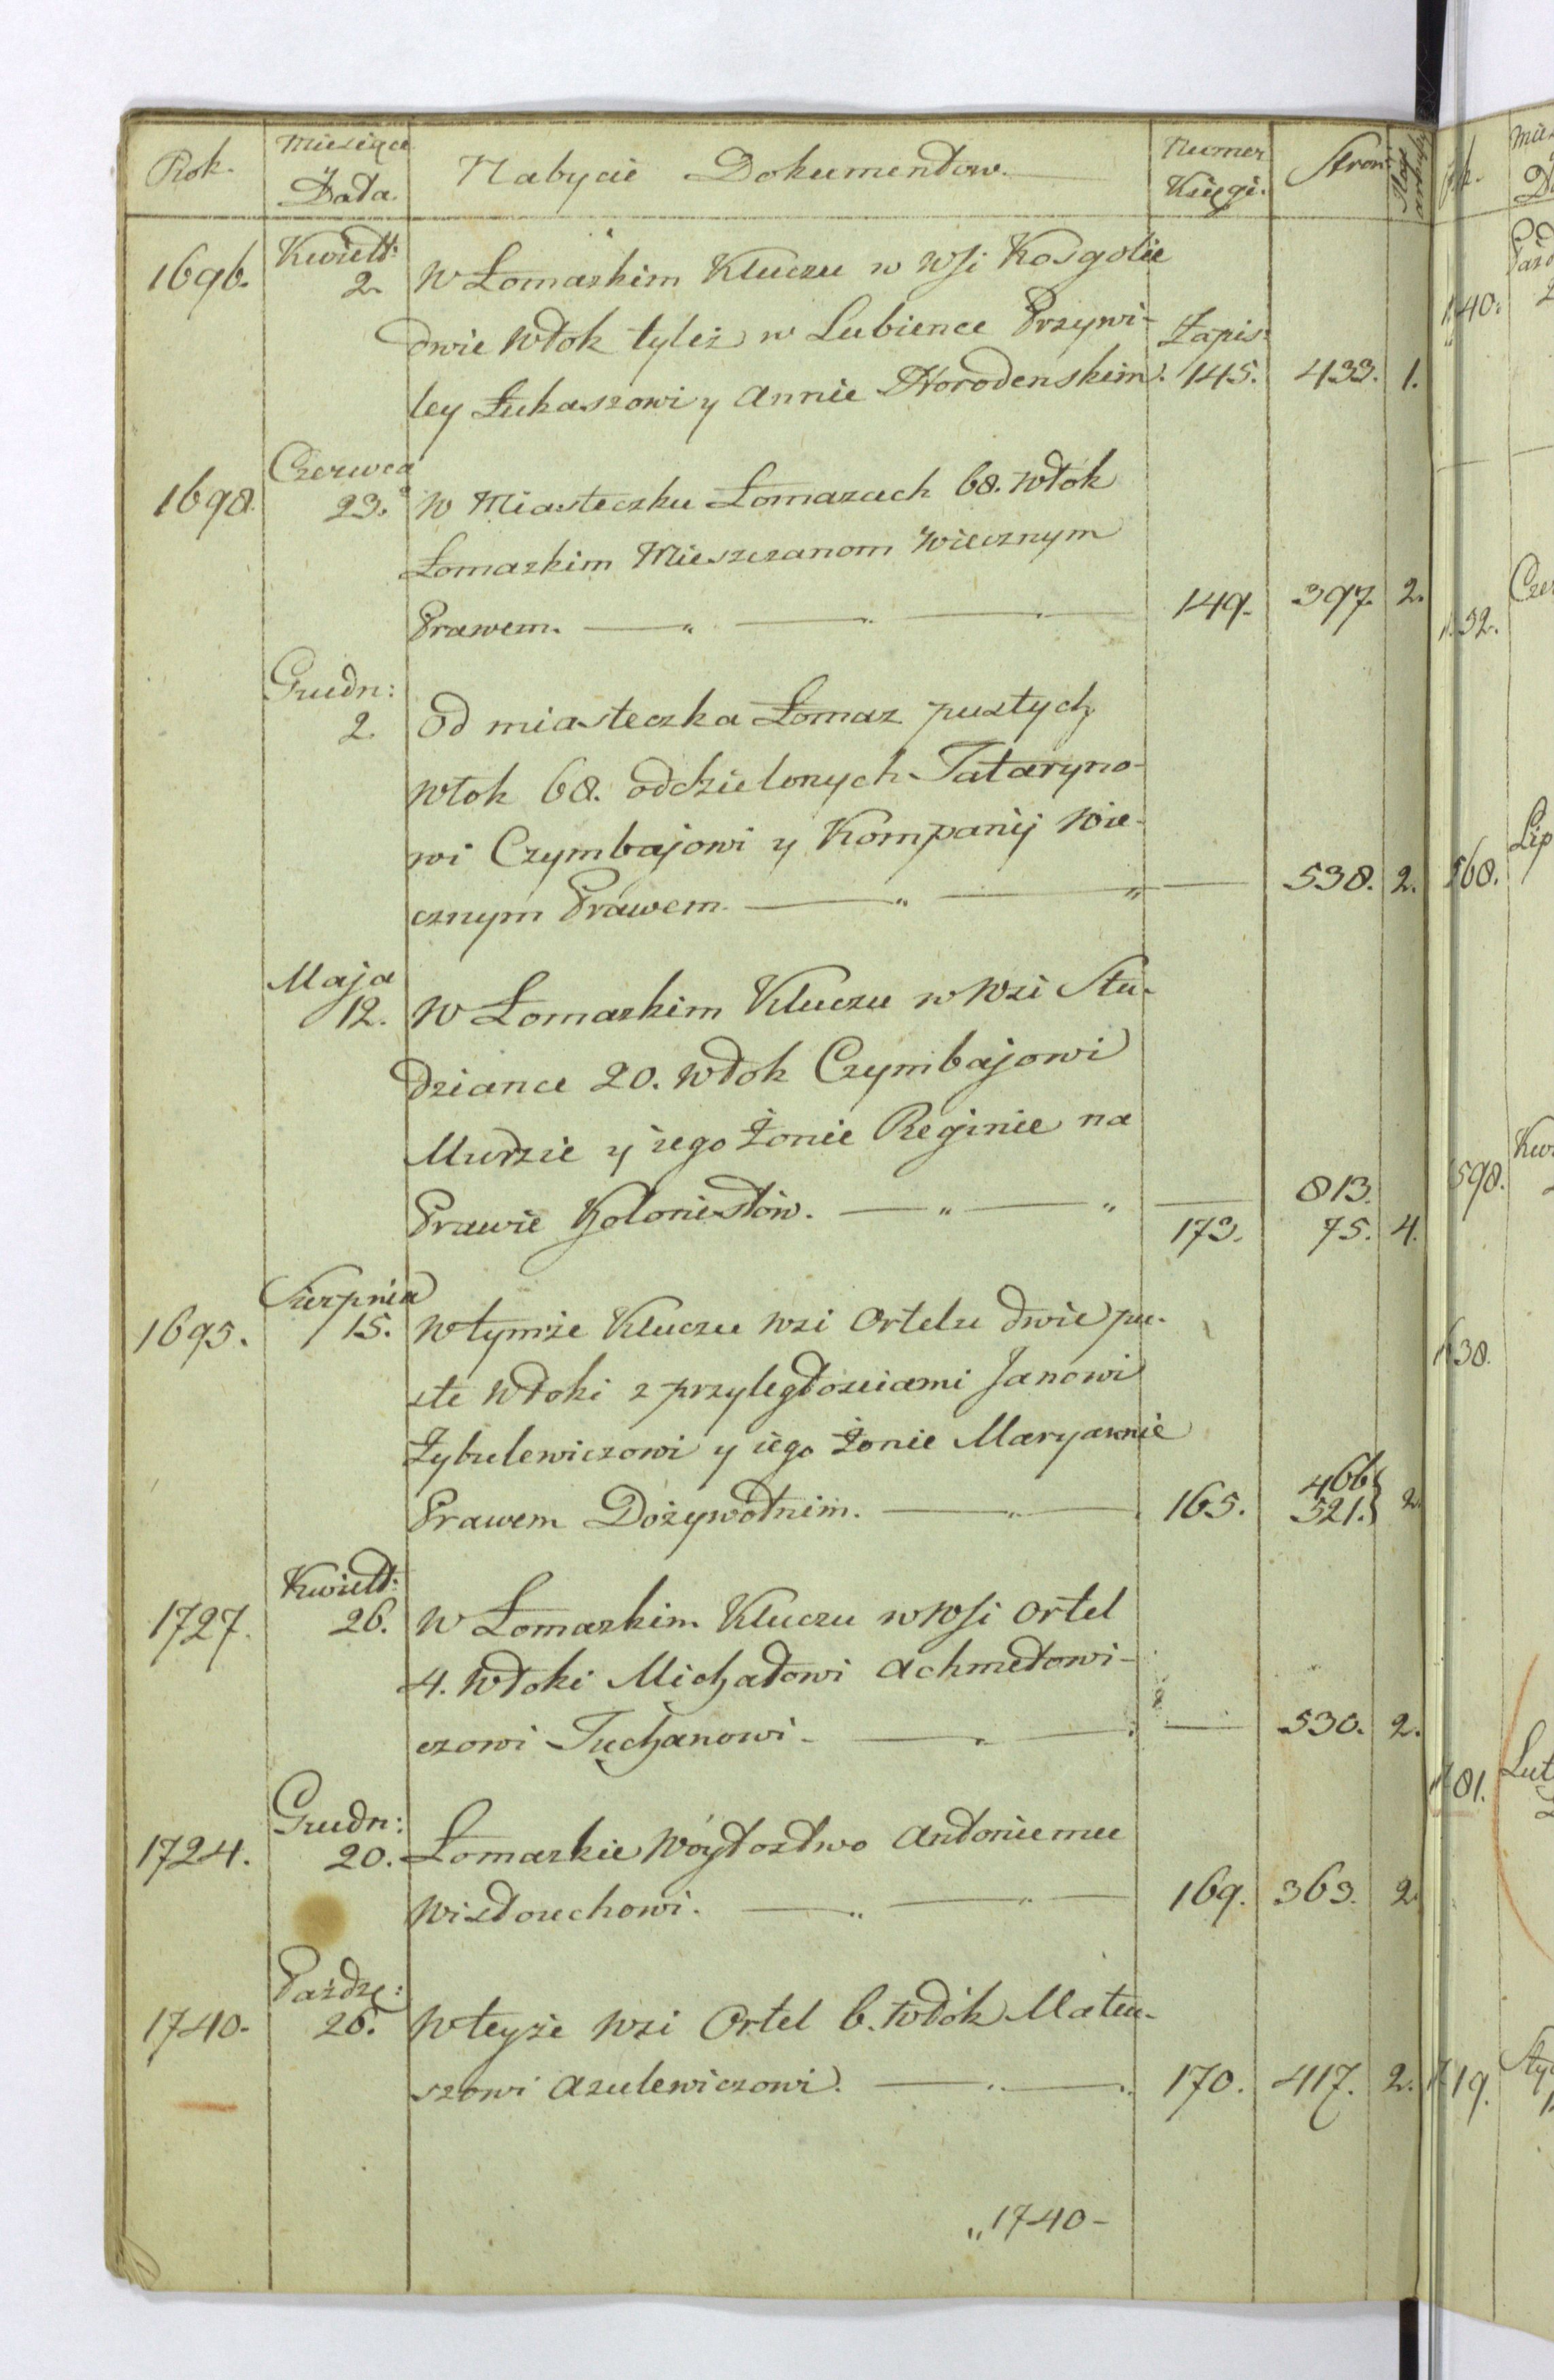 Rok. Miesiące Data. Nabycie Dokumentow. Numer Księgi. Stron
1696. Kwiett: 2. W Łomazkim Kluczu w wsi Kosgolie
dwie Włok tyleż w Lubience Przywi- Zapis:
ley Łukaszowi y Annie Horodenskim. 145. 433. 1.
1698. Czerwca 23. W Miasteczku Łomazach 68. włok
Łomazkim Mieszczanom Wiecznym
Prawem. 149. 397. 2.
Grudn: 2. Od miasteczka Łomaz pustych
włok 68. oddzielonych Tataryno-
wi Czymbajowi y Kompanij Wie-
cznym Prawem. 538. 2.
Maja 12. W Łomazkim Kluczu w Wsi Stu-
dziance 20. włok Czymbajowi
Murzie y iego Żonie Reginie na
Prawie Kolonistów. 813.
173. 75. 4.
1695. Sierpnia 15. W tymże Kluczu wsi Ortelu dwie pu-
ste Włoki z przyległosciami Janowi
Zybulewiczowi y iego Żonie Maryannie 466
Prawem Dożywotnim. 165. 521. 2.
1727. Kwiett: 26. W Łomazkim Kluczu w Wsi Ortel
4. Włoki Michałowi Achmetowi-
czowi Tuchanowi 530. 2.
1724. Grudn: 20. Łomazkie Wóytostwo Antoniemu
Wistouchowi. 169. 363. 2.
1740. Paźdz: 26. W teyże Wsi Ortel 6. włók Mateu-
szowi Azulewiczowi. 170. 417. 2.
„1740-